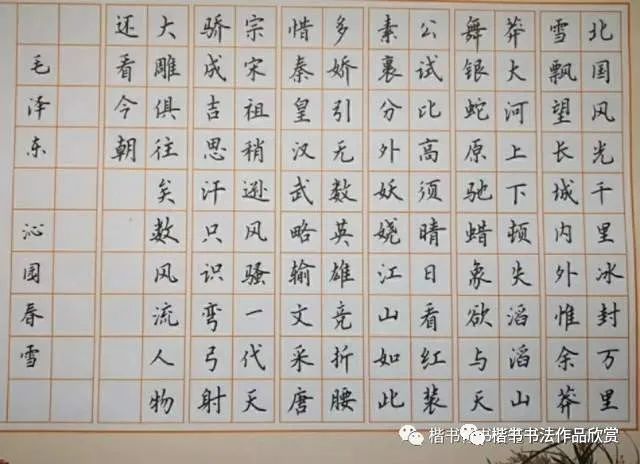 北国风光千里冰封万里
雪飘望长城内外惟余莽
莽大河上下顿失滔滔山
舞银蛇原驰蜡象欲与天
公试比高须晴日看红装
素裹分外妖娆江山如此
多娇引无数英雄竞折腰
惜秦皇汉武略输文采唐
宗宋祖稍逊风骚一代天
骄成吉思汗只识弯弓射
大雕俱往矣数风流人物
还看今朝
毛泽东 沁园春雪
楷书书法作品欣赏